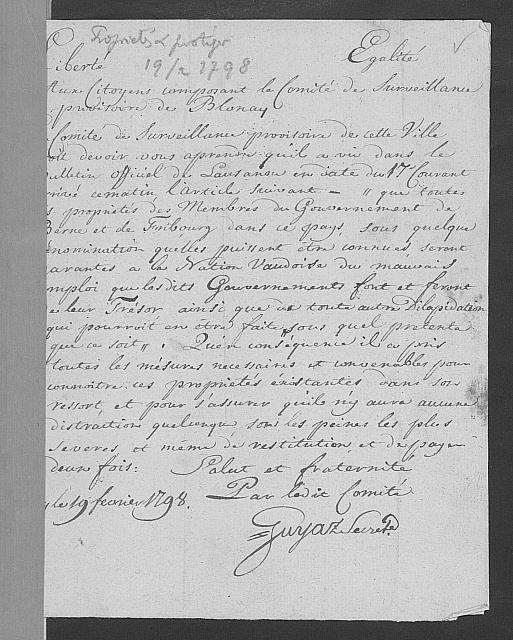 Proprietés à protéger
19/2 1798
Liberté Egalité
Aux Citoyens composant le Comité de Surveillance
provisoire de Blonay
Comité de Surveillance provisoire de cette Ville
oit devoir vous aprendre qu'il a vu dans le
ulletin officiel de Lausanne en date du 17e Courant
rivé ce matin l'article suivant — " que toutes
s propriétés des Membres du Gouvernement de
Berne et de Fribourg dans ce pays, sous quelque
énomination quelles puissent etre connues seront
arantes a la Nation Vaudoise du mauvais
mploi que lesdits Gouvernements font et feront
e leur Trésor ainsi que de toute autre Dilapidation
qui pourroit en être fait sous quel pretexte
que ce soit ". Qu'en conséquence il a pris
toutes les mésures necessaires et convenables pour
connoitre ces propriétés éxistantes dans son
ressort, et pour s'assurer qu'il n'y aura aucune
distraction quelconque sous les peines les plus
severes et même de restitution et de payer
deux fois : Salut et fraternité
le 19 fevrier 1798. Par ledit Comité
Guyaz Secret.